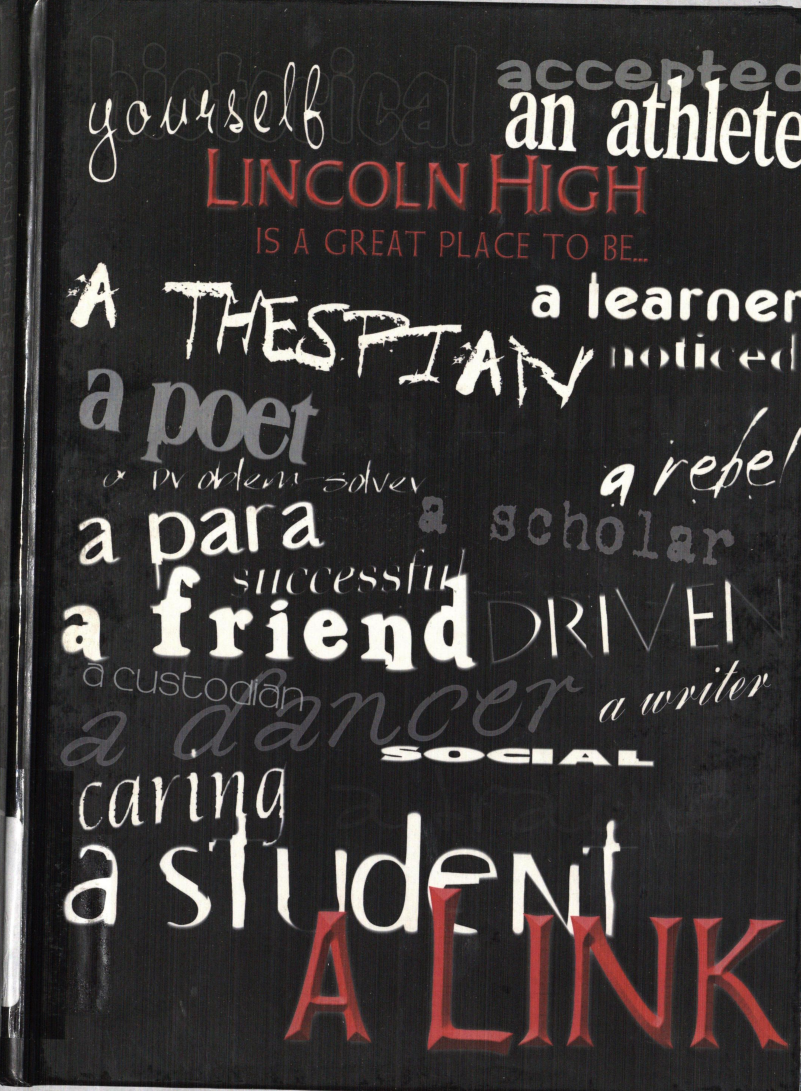 historical
accepted
yourself
an athlete
LINCOLN HIGH
IS A GREAT PLACE TO BE...
A THESPIAN
a learner
noticed
a poet
a rebel
a problem-solver
a para
a scholar
successful
a friend
DRIVEN
a custodian
a dancer
a writer
SOCIAL
caring
a student
A LINK